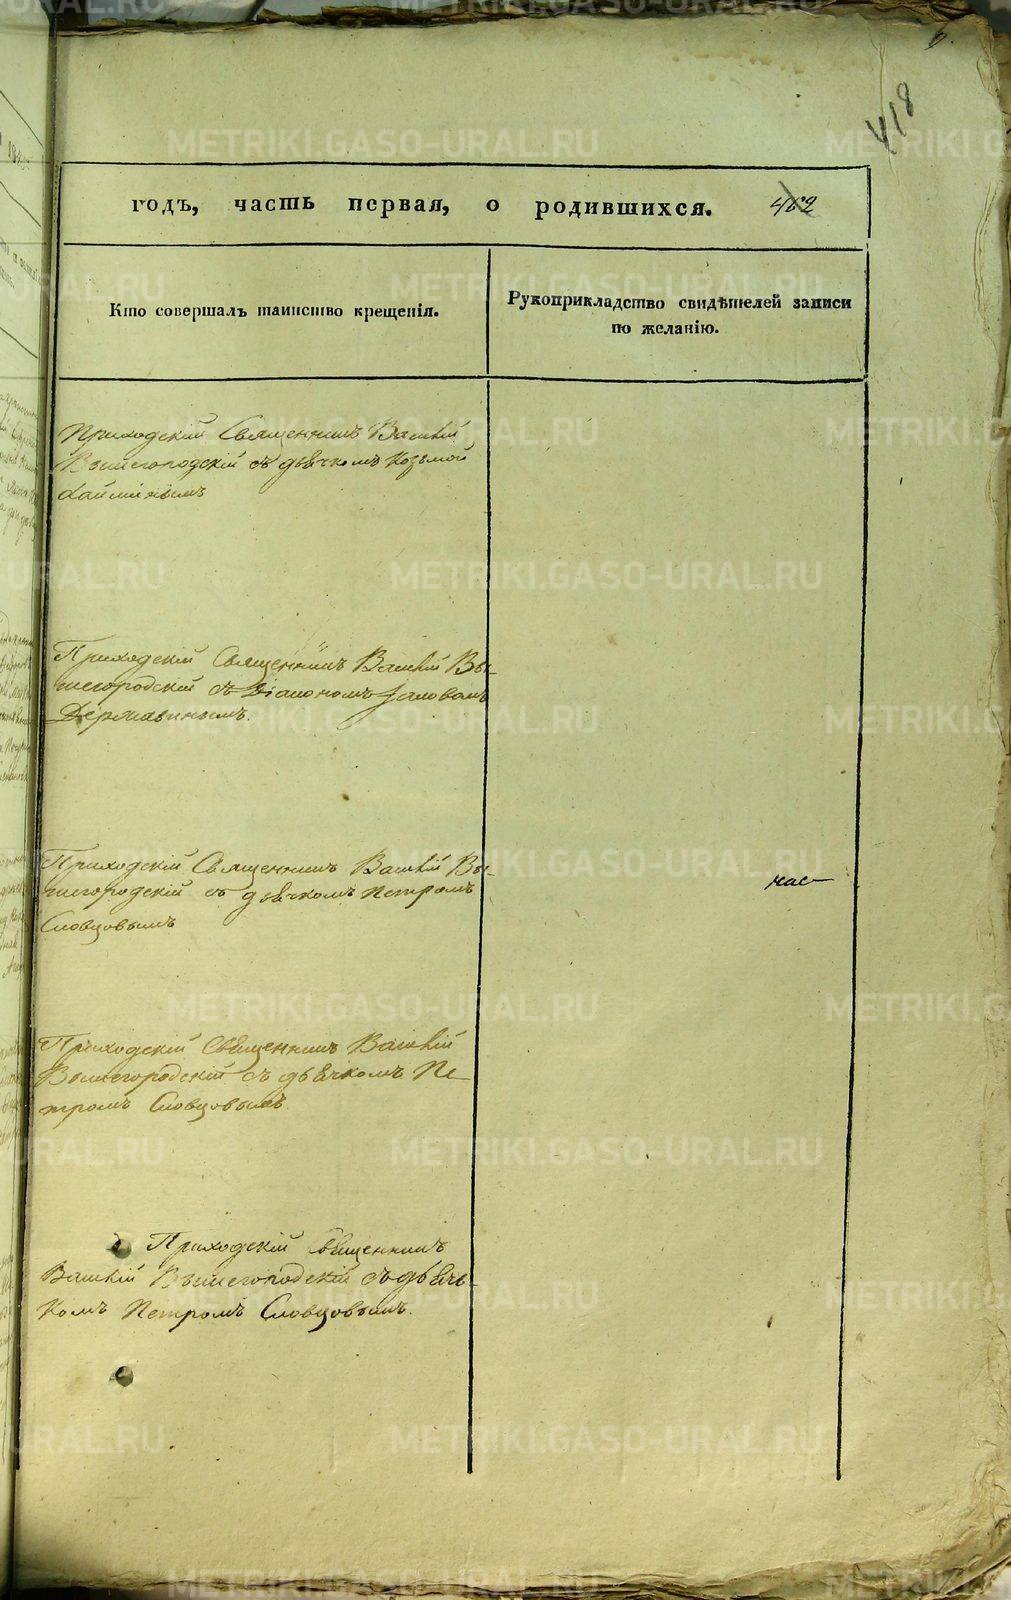 418
годъ, часть первая, о родившихся. 462
Кто совершалъ таинство крещенія.
Рукоприкладство свидѣтелей записи
по желанію.
Приходскій Священникъ Васи́лій
Вышегородскій съ дьячкомъ Козьмой
Приходскій Священникъ Василій Вы-
шегородскій съ Діакономъ Іаковомъ
Державинымъ.
Приходскій Священникъ Василій Вы-
шегородскій съ дьячкомъ Петромъ
Словцовымъ
Приходскій Священникъ Василій
Вышегородскій съ дьячкомъ Пе-
тромъ Словцовымъ
Приходскій священникъ
Василій Вышегородскій съ дьячь-
комъ Петромъ Словцовымъ.
METRIKI.GASO-URAL.RU